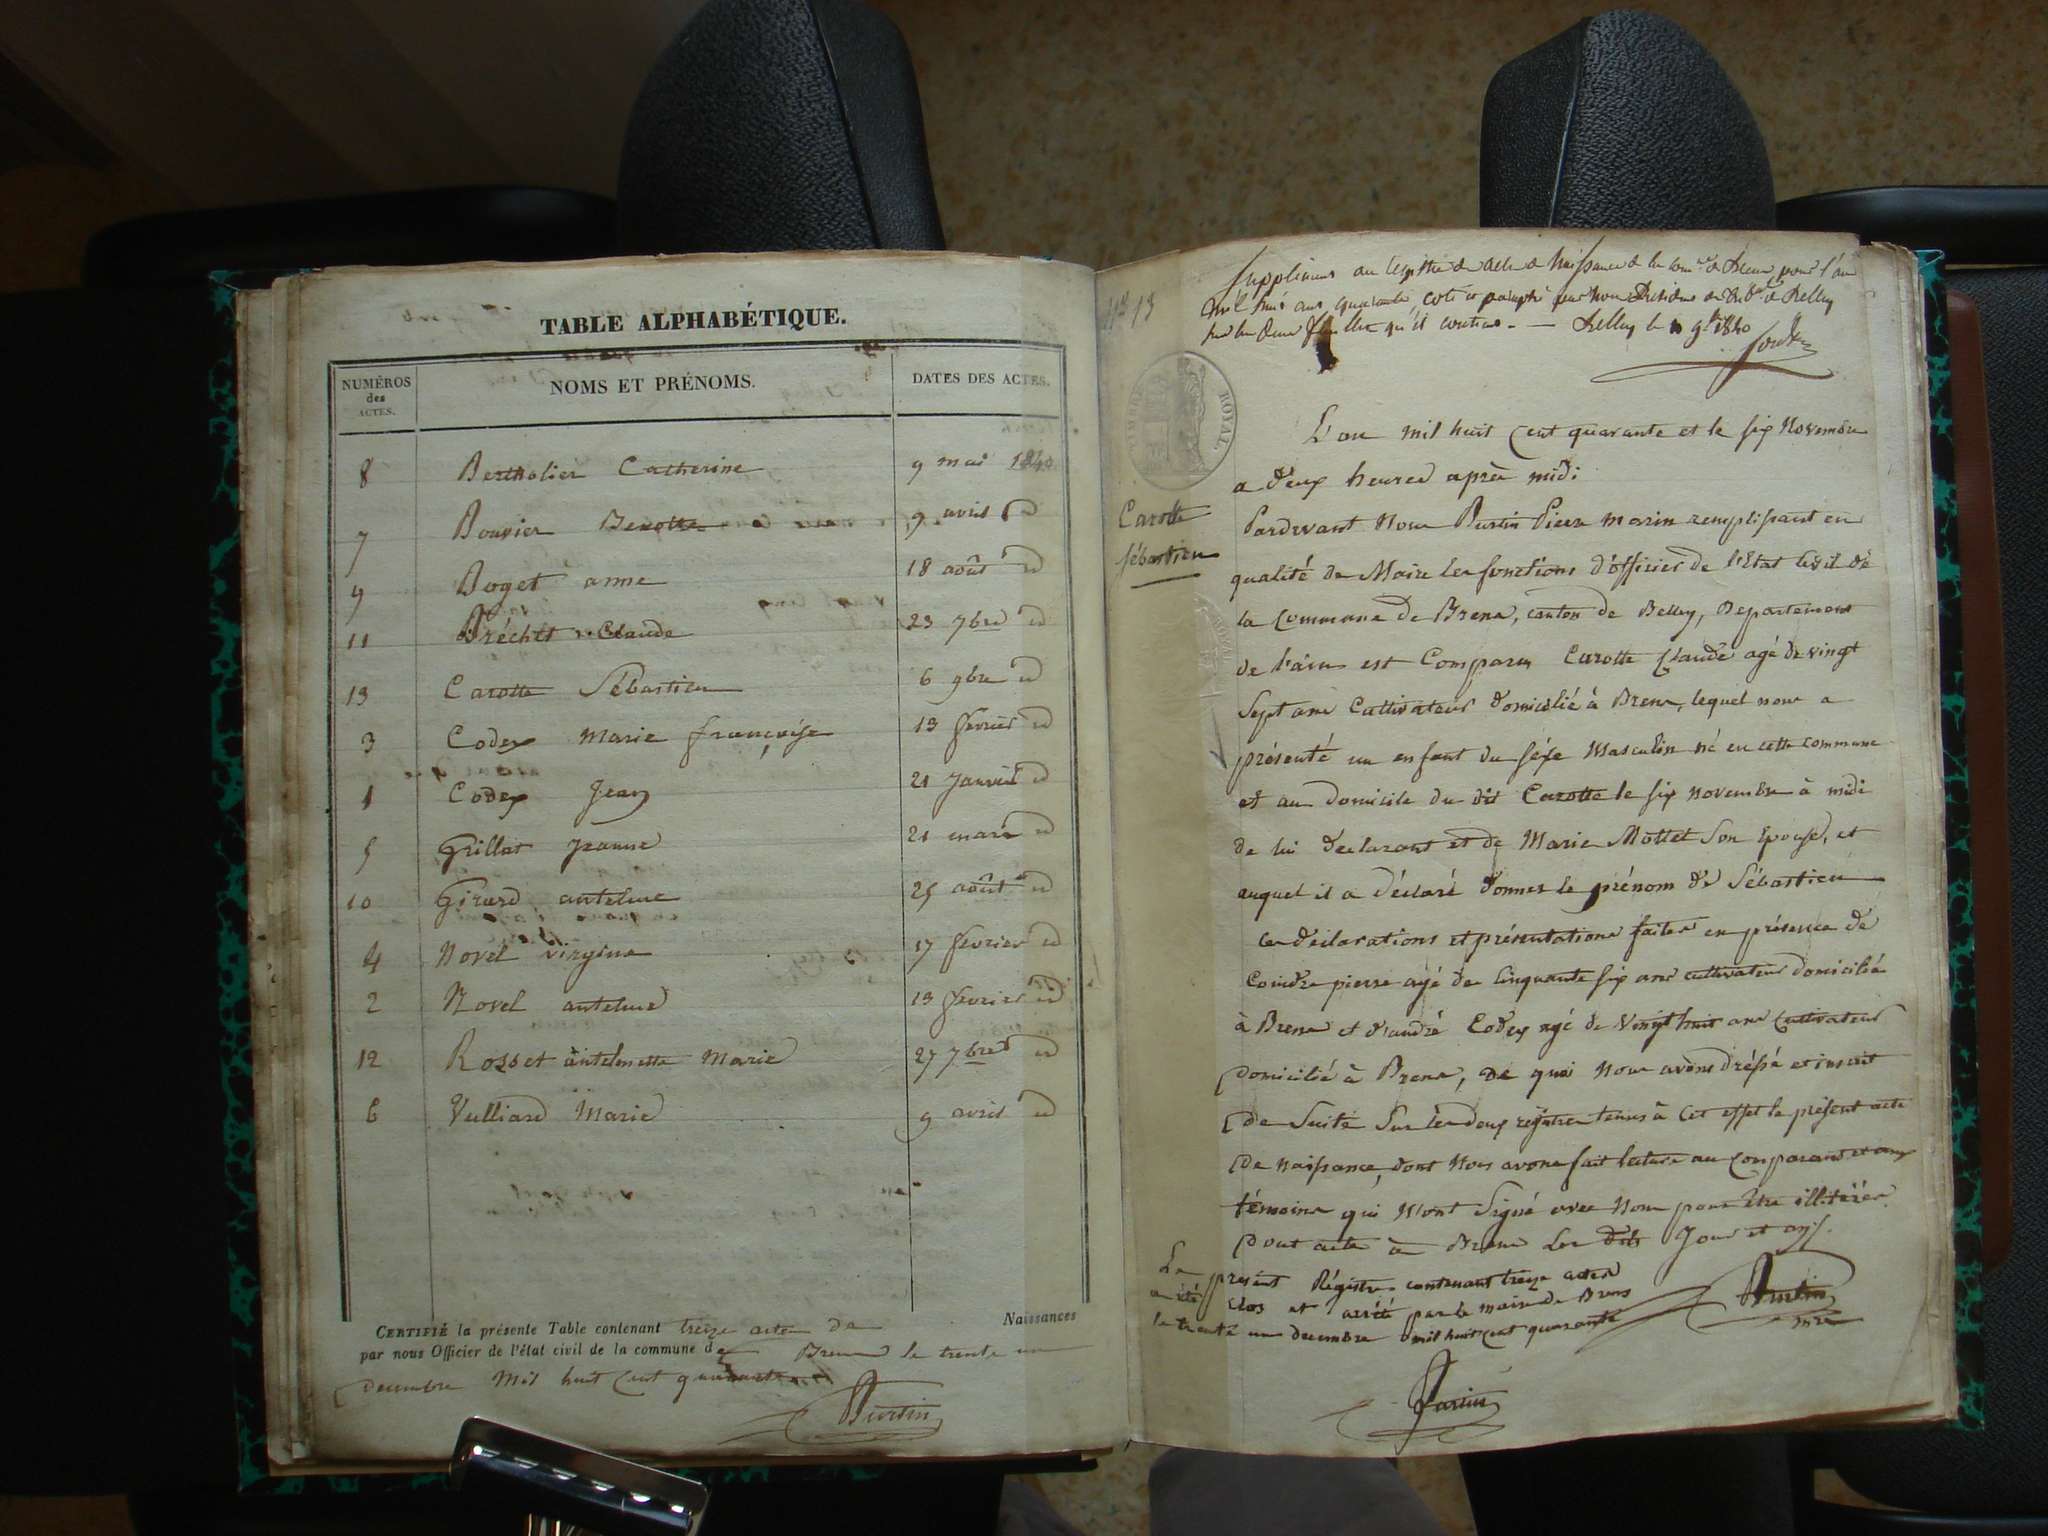 TABLE ALPHABÉTIQUE.
NUMÉROS des ACTES. NOMS ET PRÉNOMS. DATES DES ACTES.
8 Bertholier Catherine 9 mai 1840
7 Bouvier Benoite 9 avril id
9 Boget anne 18 août id
11 Bréchet Claude 23 7bre id
13 Carotte Sébastien 6 9bre id
3 Codex Marie françoise 13 février id
1 Codex Jean 21 Janvier id
5 Grillet Jeanne 21 mars id
10 Girard antelme 25 août id
4 Novel virginie 17 février id
2 Novel antelme 13 février id
12 Rosset antelmette Marie 27 7bre id
6 Vulliard Marie 9 avril id
CERTIFIÉ la présente Table contenant treize actes de Naissances
par nous Officier de l'état civil de la commune de Brens le trente un
decembre Mil huit Cent quarante
Burtin
N° 13
Supplément au registre de acte de Naissance de la comne de Brens pour l'an
mil huit cent quarante, coté et paraphé par nous Président du de Belley
sur les deux feuillets qu'il contient. — Belley le 9bre 1840
TIMBRE ROYAL
Carotte
Sébastien
L'an mil huit Cent quarante et le six Novembre
a deux heures après midi
Pardevant Nous Burtin Pierre Marin remplissant en
qualité de Maire les fonctions d'officier de l'Etat Civil de
la Commune de Brens, canton de Belley, Departement
de l'ain est Comparu Carotte Claude agé de vingt
Sept ans Cultivateur domicilié à Brens, lequel nous a
présenté un enfant du séxe Masculin né en cette commune
et au domicile du dit Carotte le six novembre à midi
de lui declarant et de Marie Mottet Son Epouse, et
auquel il a déclaré donner le prénom de Sébastien
ces déclarations et présentations faites en présence de
Coindre pierre agé de Cinquante six ans cultivateur domicilié
à Brens et d'andré Codex agé de vingt huit ans Cultivateur
domicilié à Brens, De quoi Nous avons dréssé et inscrit
de Suite Sur les deux registres tenus à Cet effet le présent acte
de Naissance, dont Nous avons fait lecture au Comparant et aux
témoins qui N'ont Signé avec Nous pour être illitérés
Dont acte à Brens Les dits Jour et an.
Le présent Régistre contenant treize actes
a été clos et arrêté par le maire de Brens
le trente un decembre mil huit cent quarante
Burtin
mre
Burtin